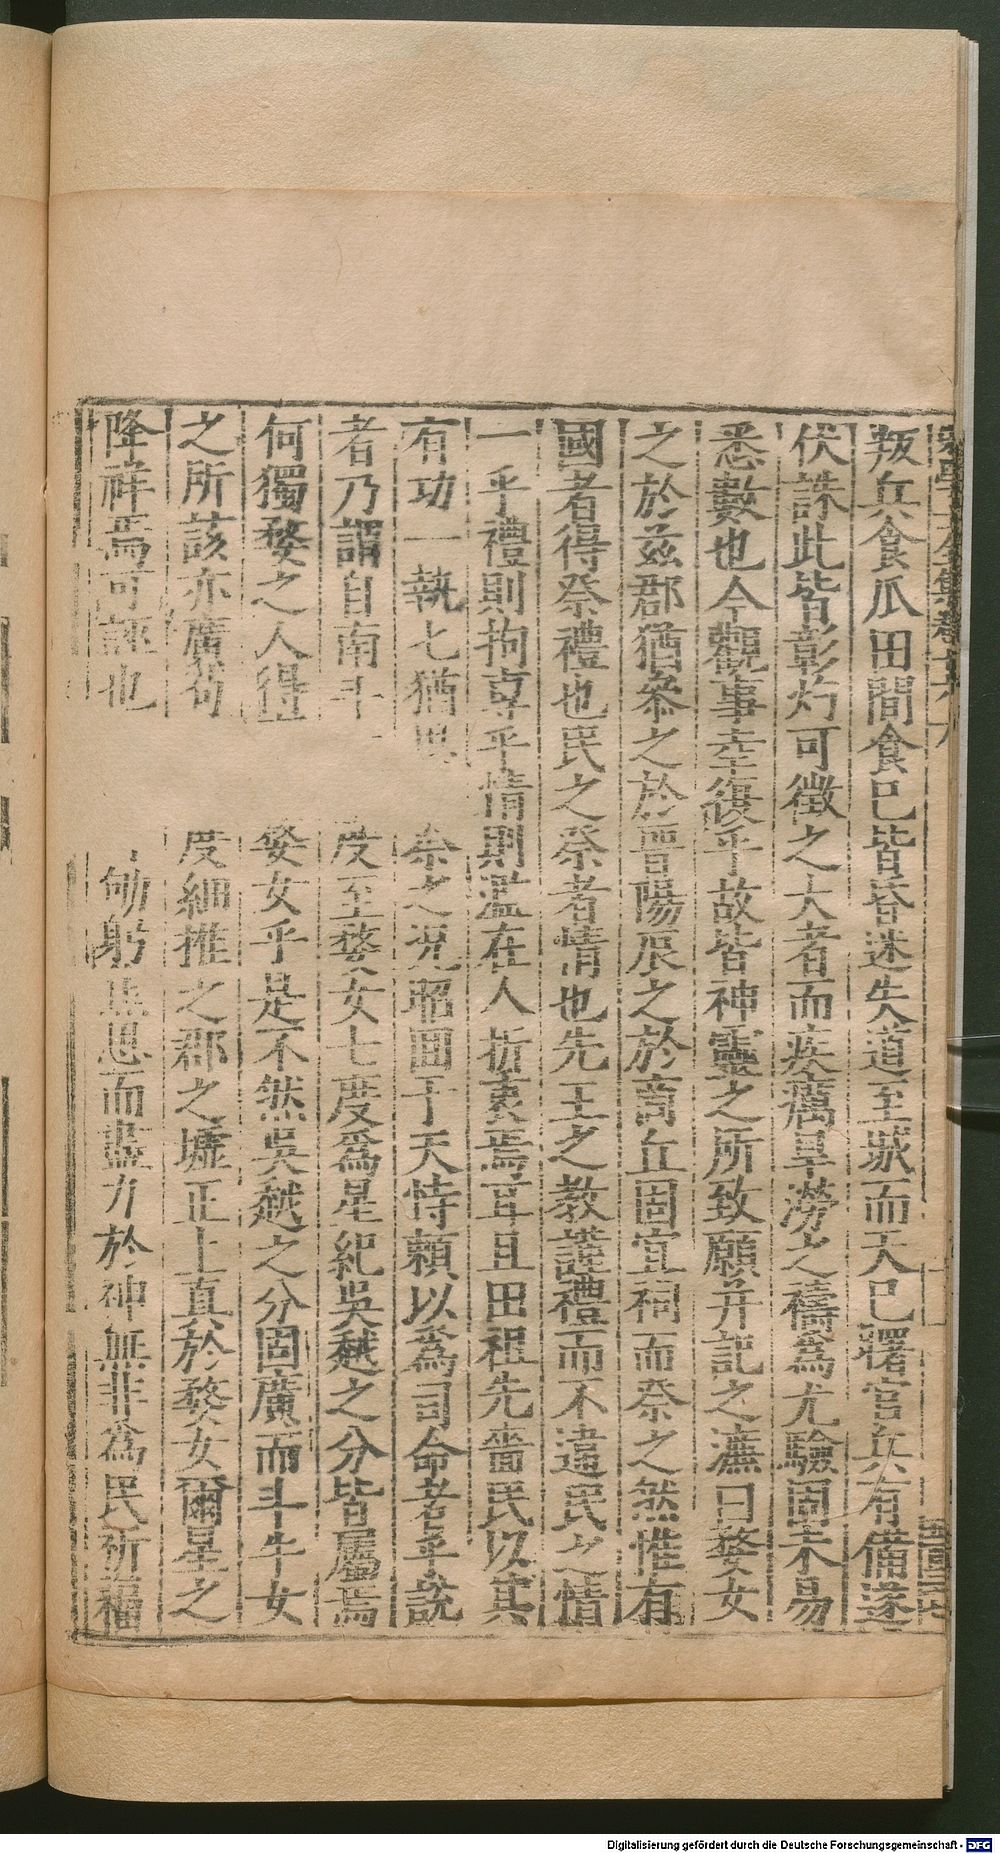 叛兵食瓜田間食已皆昏迷失道至城而天已曙官兵有備遂
伏誅此皆彰灼可徵之大者而疾癘旱澇之禱為尤驗固未易
悉數也今觀事幸復乎故皆神靈之所致願并記之濂曰婺女
之於茲郡猶參之於晉陽辰之於商丘固宜祠而祭之然惟有
國者得祭禮也民之祭者情也先王之教謹禮而不違民之情
一乎禮則拘專乎情則濫在人折衷焉耳且田祖先嗇民以其
有功一執七猶 祭之況昭回于天恃賴以為司命者乎說
者乃謂自南斗 度至婺女七度為星紀吳越之分皆屬焉
何獨婺之人得 婺女乎是不然吳越之分固廣而斗牛女
之所該亦廣苟 度細推之郡之墟正上直於婺女爾星之
降祥焉可誣也 劬躬 思而盡力於神無非為民祈福
Digitalisierung gefördert durch die Deutsche Forschungsgemeinschaft - DFG